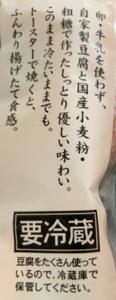 卵・牛乳を使わず、
自家製豆腐と国産小麦粉・
粗糖で作ったしっとり優しい味わい。
このまま冷たいままでも。
トースターで焼くと、
ふんわり揚げたて食感。
要冷蔵
豆腐をたくさん使って
いるので、冷蔵庫で
保管してください。